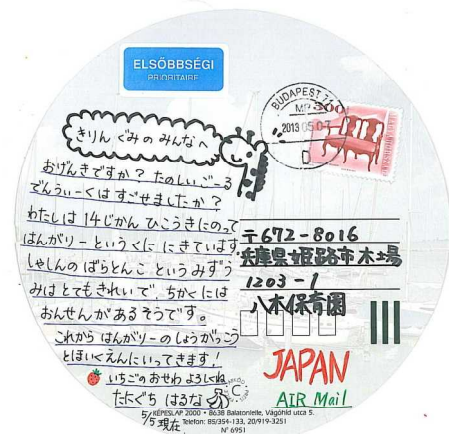 ELSŐBBSÉGI
PRIORITAIRE
BUDAPEST
2013 05 07
MP 300
きりん ぐみの みんなへ
おげんきですか？ たのしい ごーる
でんうぃーくは すごせましたか？
わたしは 14じかん ひこうきにのって
はんがりーというくに にきています
しゃしんの ばらとんこ というみずう
みは とてもきれいで、ちかくには
おんせんがあるそうです。
これから はんがりーの しょうがっこう
とほいくえんにいってきます！
いちごのおせわ よろしくね
たにぐち はるな
5/5 現在
〒672-8016
兵庫県姫路市木場
1203-1
八木保育園
JAPAN
AIR Mail
KÉPESLAP 2000 • 8638 Balatonlelle, Vágóhíd utca 5.
Telefon: 85/354-133, 20/919-3251
N° 6951